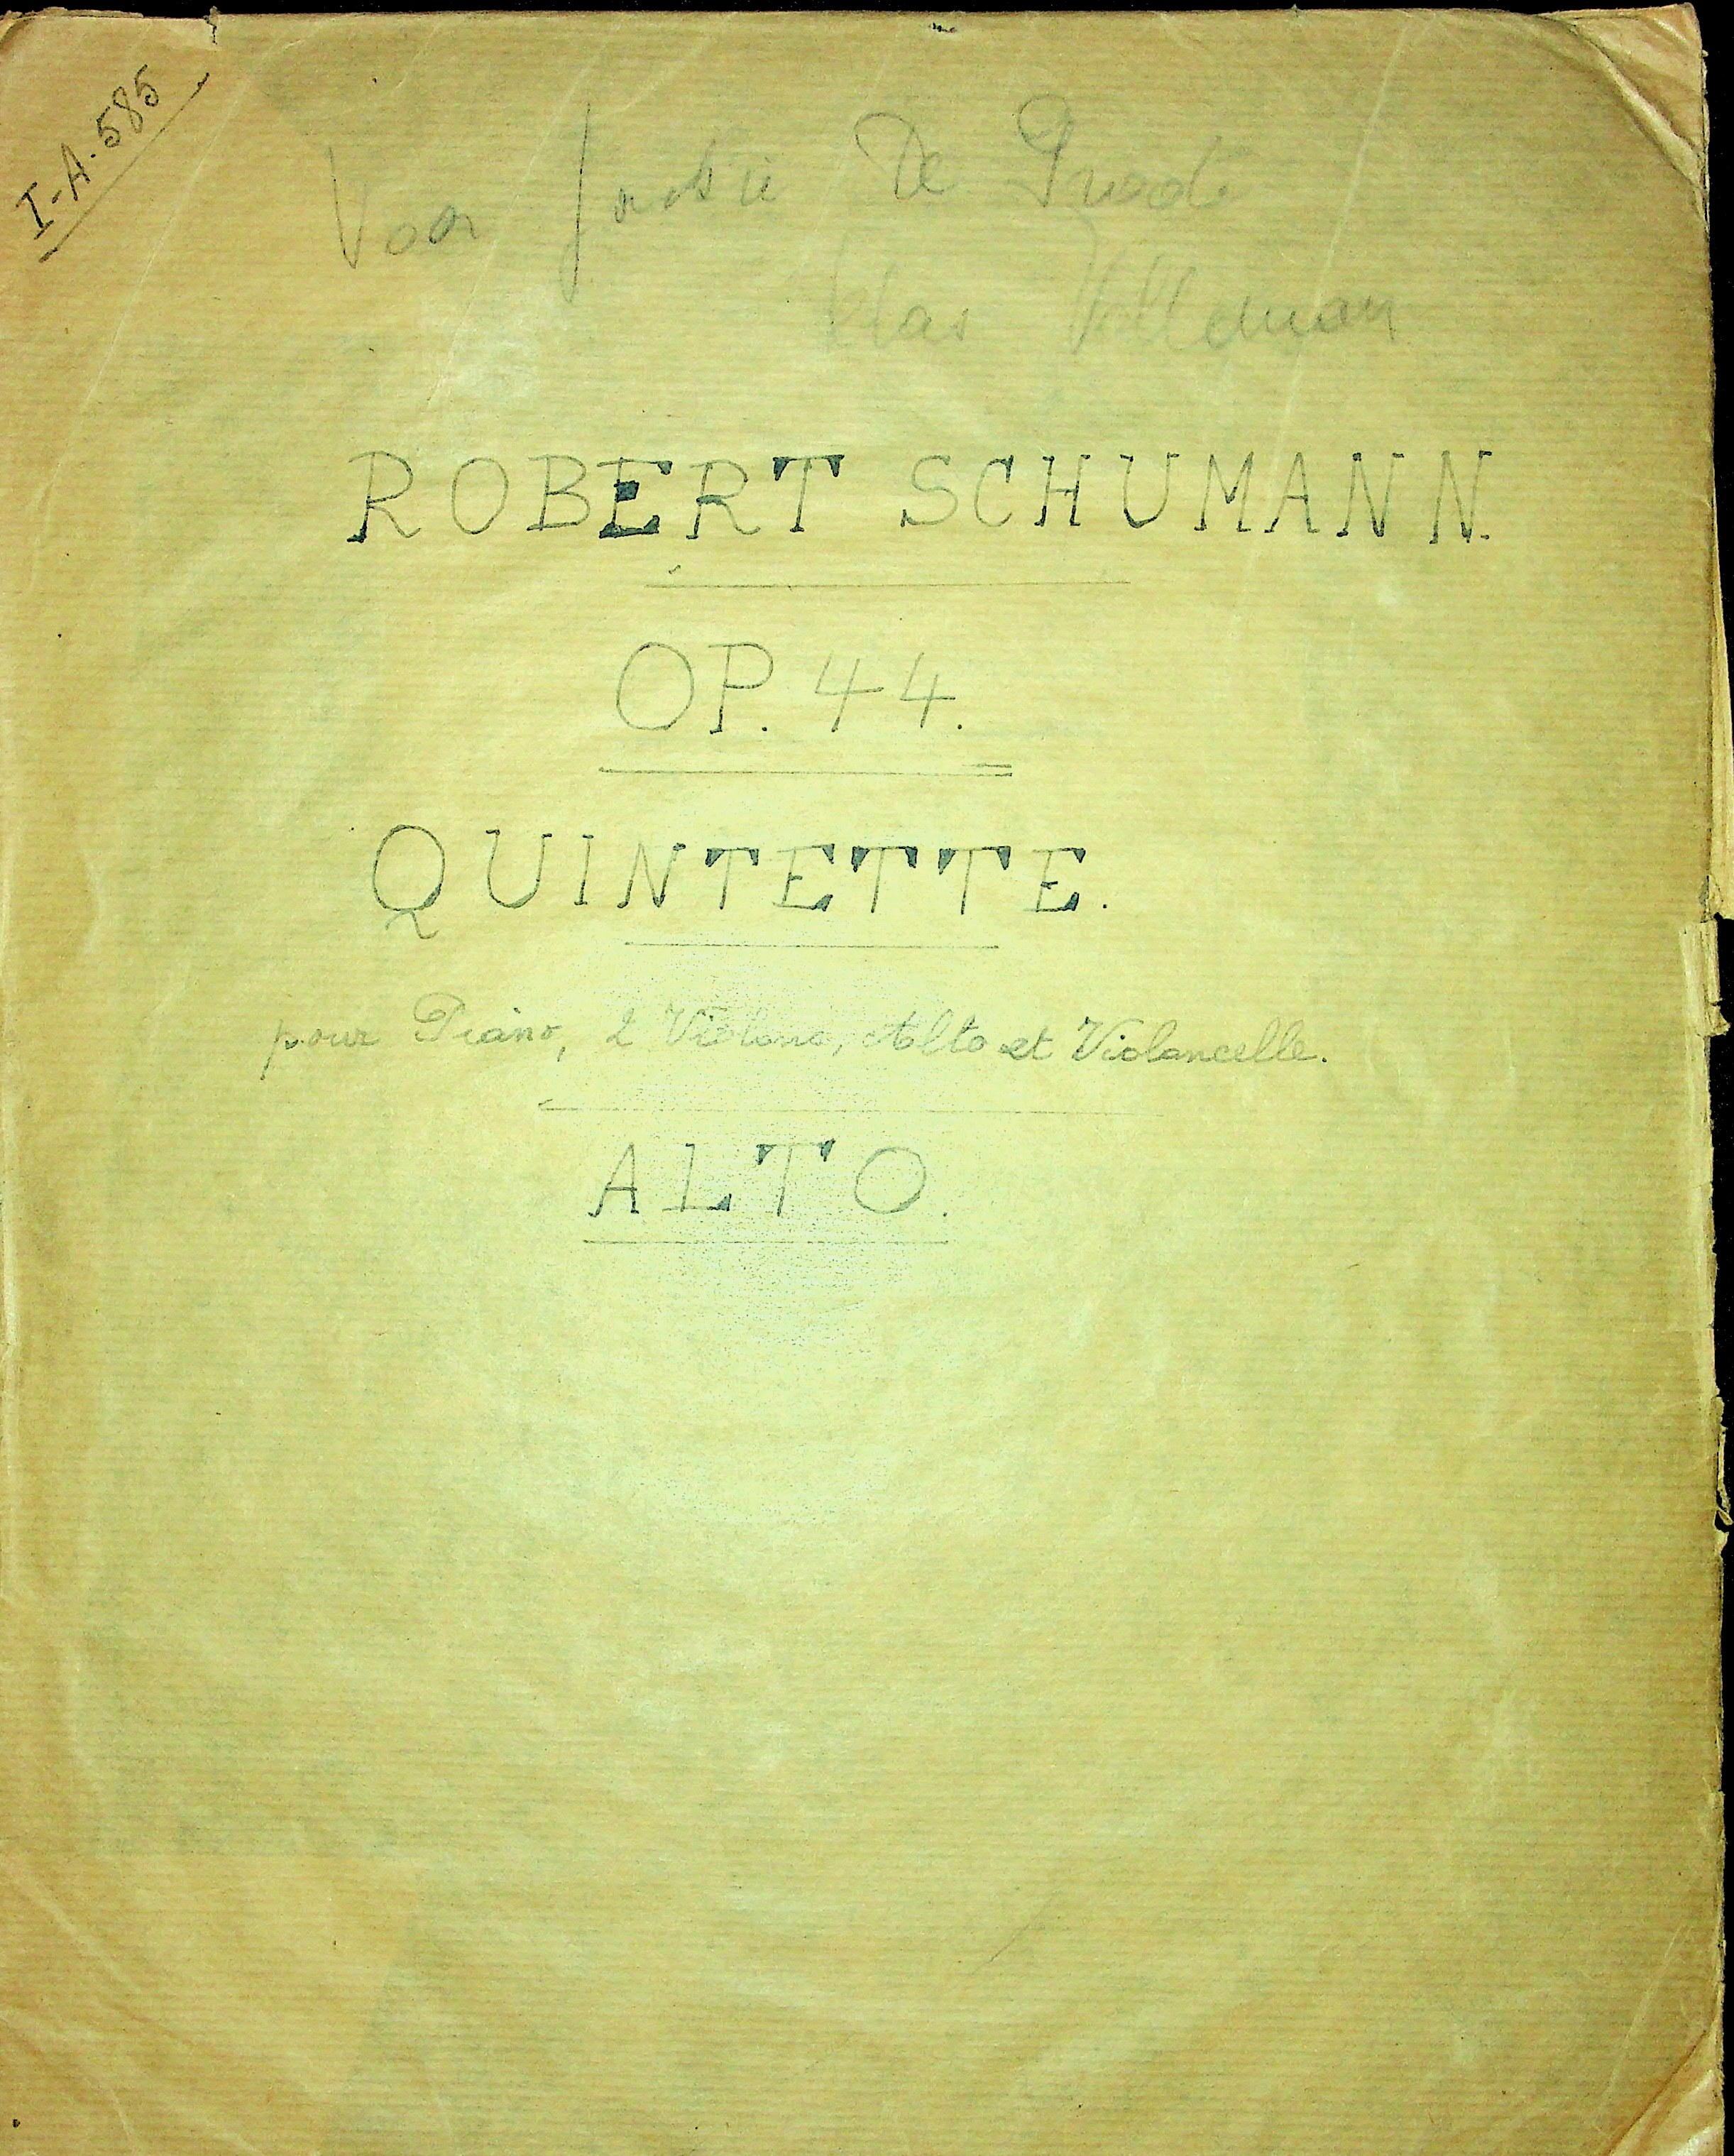 I-A.585
Voor De
Klas
ROBERT SCHUMANN.
OP. 44.
QUINTETTE.
pour Piano, 2 Violons, Alto et Violoncelle.
ALTO.